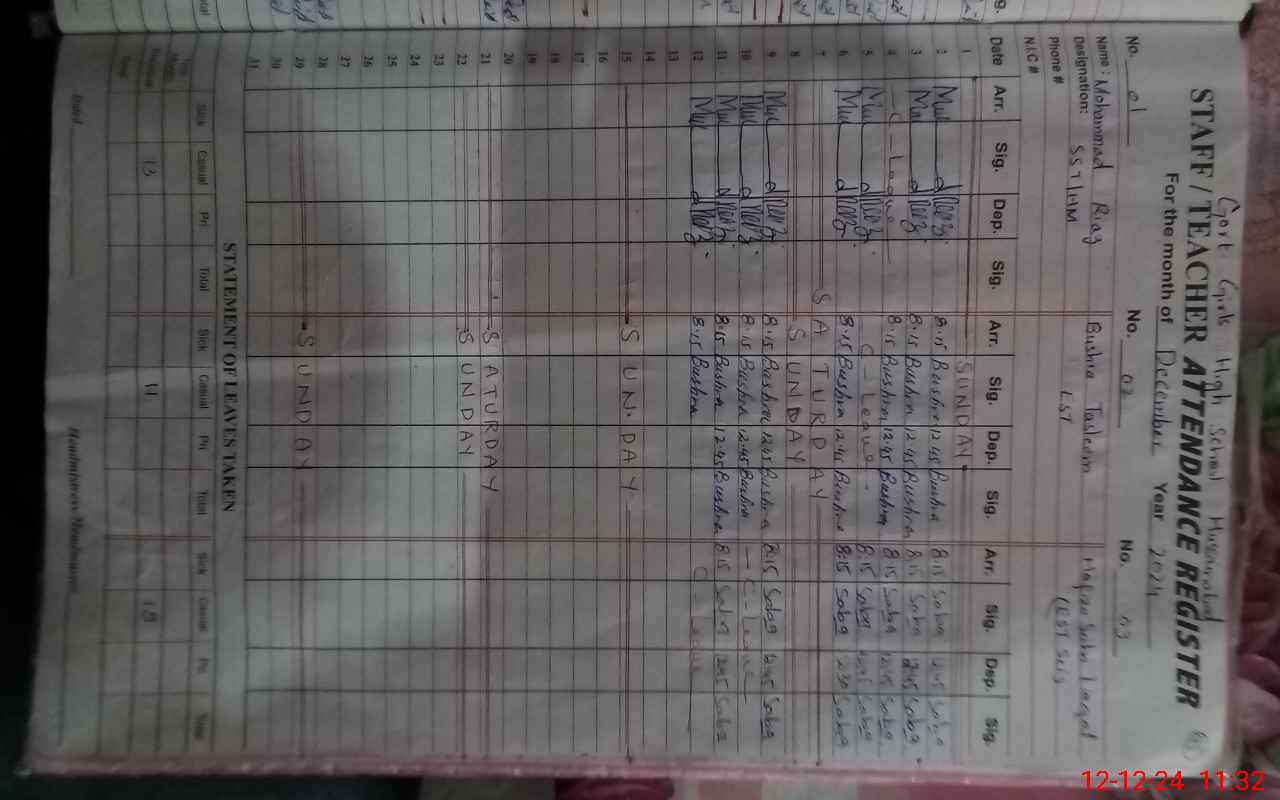 Govt. Girls High School
STAFF / TEACHER ATTENDANCE REGISTER
For the month of December Year 2024
No. 01 No. 02 No. 03
Name : Mohammad Riaz Bushra Tasleem
Designation: SST/HM EST
Phone #
N.I.C #
Date Arr. Sig. Dep. Sig. Arr. Sig. Dep. Sig. Arr. Sig. Dep. Sig.
1 SUNDAY
2 8:15 Bushra 12:45 Bushra 8:15 Saba 12:45 Saba
3 8:15 Bushra 12:45 Bushra 8:15 Saba 12:45 Saba
4 C - Leave 8:15 Bushra 12:45 Bushra 8:15 Saba 12:45 Saba
5 C - Leave 8:15 Saba 12:45 Saba
6 8:15 Bushra 12:45 Bushra 8:15 Saba 12:30 Saba
7 SATURDAY
8 SUNDAY
9 8:15 Bushra 12:45 Bushra 8:15 Saba 12:45 Saba
10 8:15 Bushra 12:45 Bushra C - Leave
11 8:15 Bushra 12:45 Bushra 8:15 Saba 12:45 Saba
12 8:15 Bushra C - Leave
13
14
15 SUNDAY
16
17
18
19
20
21 SATURDAY
22 SUNDAY
23
24
25
26
27
28
29 SUNDAY
30
31
STATEMENT OF LEAVES TAKEN
Sick Casual Pri Total Sick Casual Pri Total Sick Casual Pri Total
13 11 18
Total
Dated Headmistress/Headmaster
12-12-24 11:32